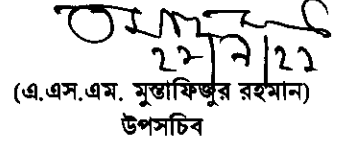 (এ.এস.এম. মুস্তাফিজুর রহমান)
উপসচিব